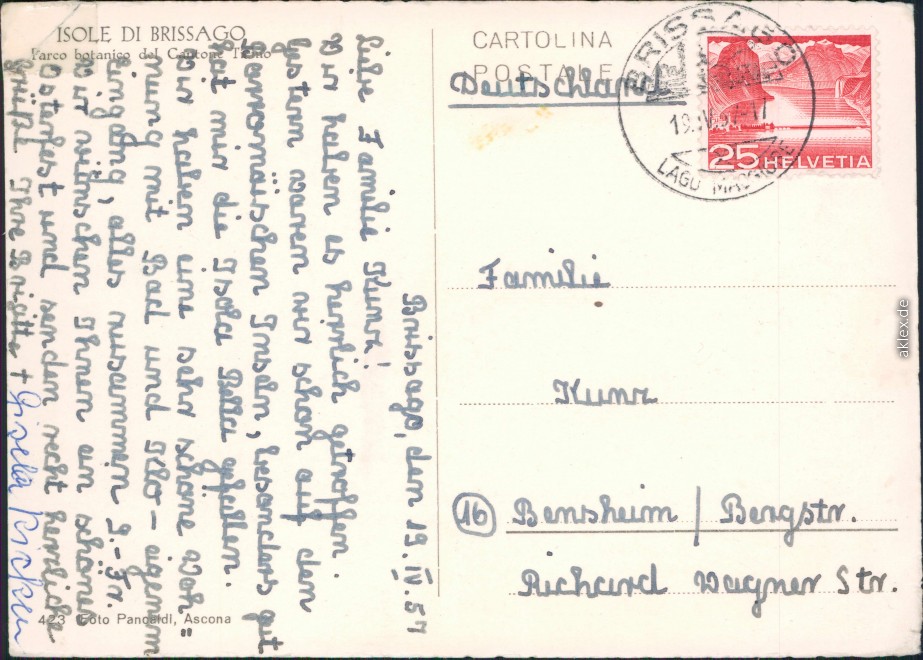 ISOLE DI BRISSAGO
Parco botanico del Cantone Ticino
Brissago, den 19. IV. 57
Liebe Familie Kunz!
Wir haben es herrlich getroffen.
Gestern waren wir schon auf den
Borromäischen Inseln, besonders gut
hat mir die Isola Bella gefallen.
Wir haben eine sehr schöne Woh=
nung mit Bad und Klo- eigenem
Eingang, alles zusammen 9.- Fr.
Wir wünschen Ihnen ein schönes
Osterfest und senden recht herzliche
Grüße Ihre Brigitte + Gisela
423 Foto Pancaldi, Ascona
CARTOLINA
POSTALE
Deutschland
BRISSAGO
19. IV. 57-17
LAGO MAGGIORE
25 HELVETIA
Familie
Kunz
16 Bensheim / Bergstr.
Richard Wagner Str.
aklex.de